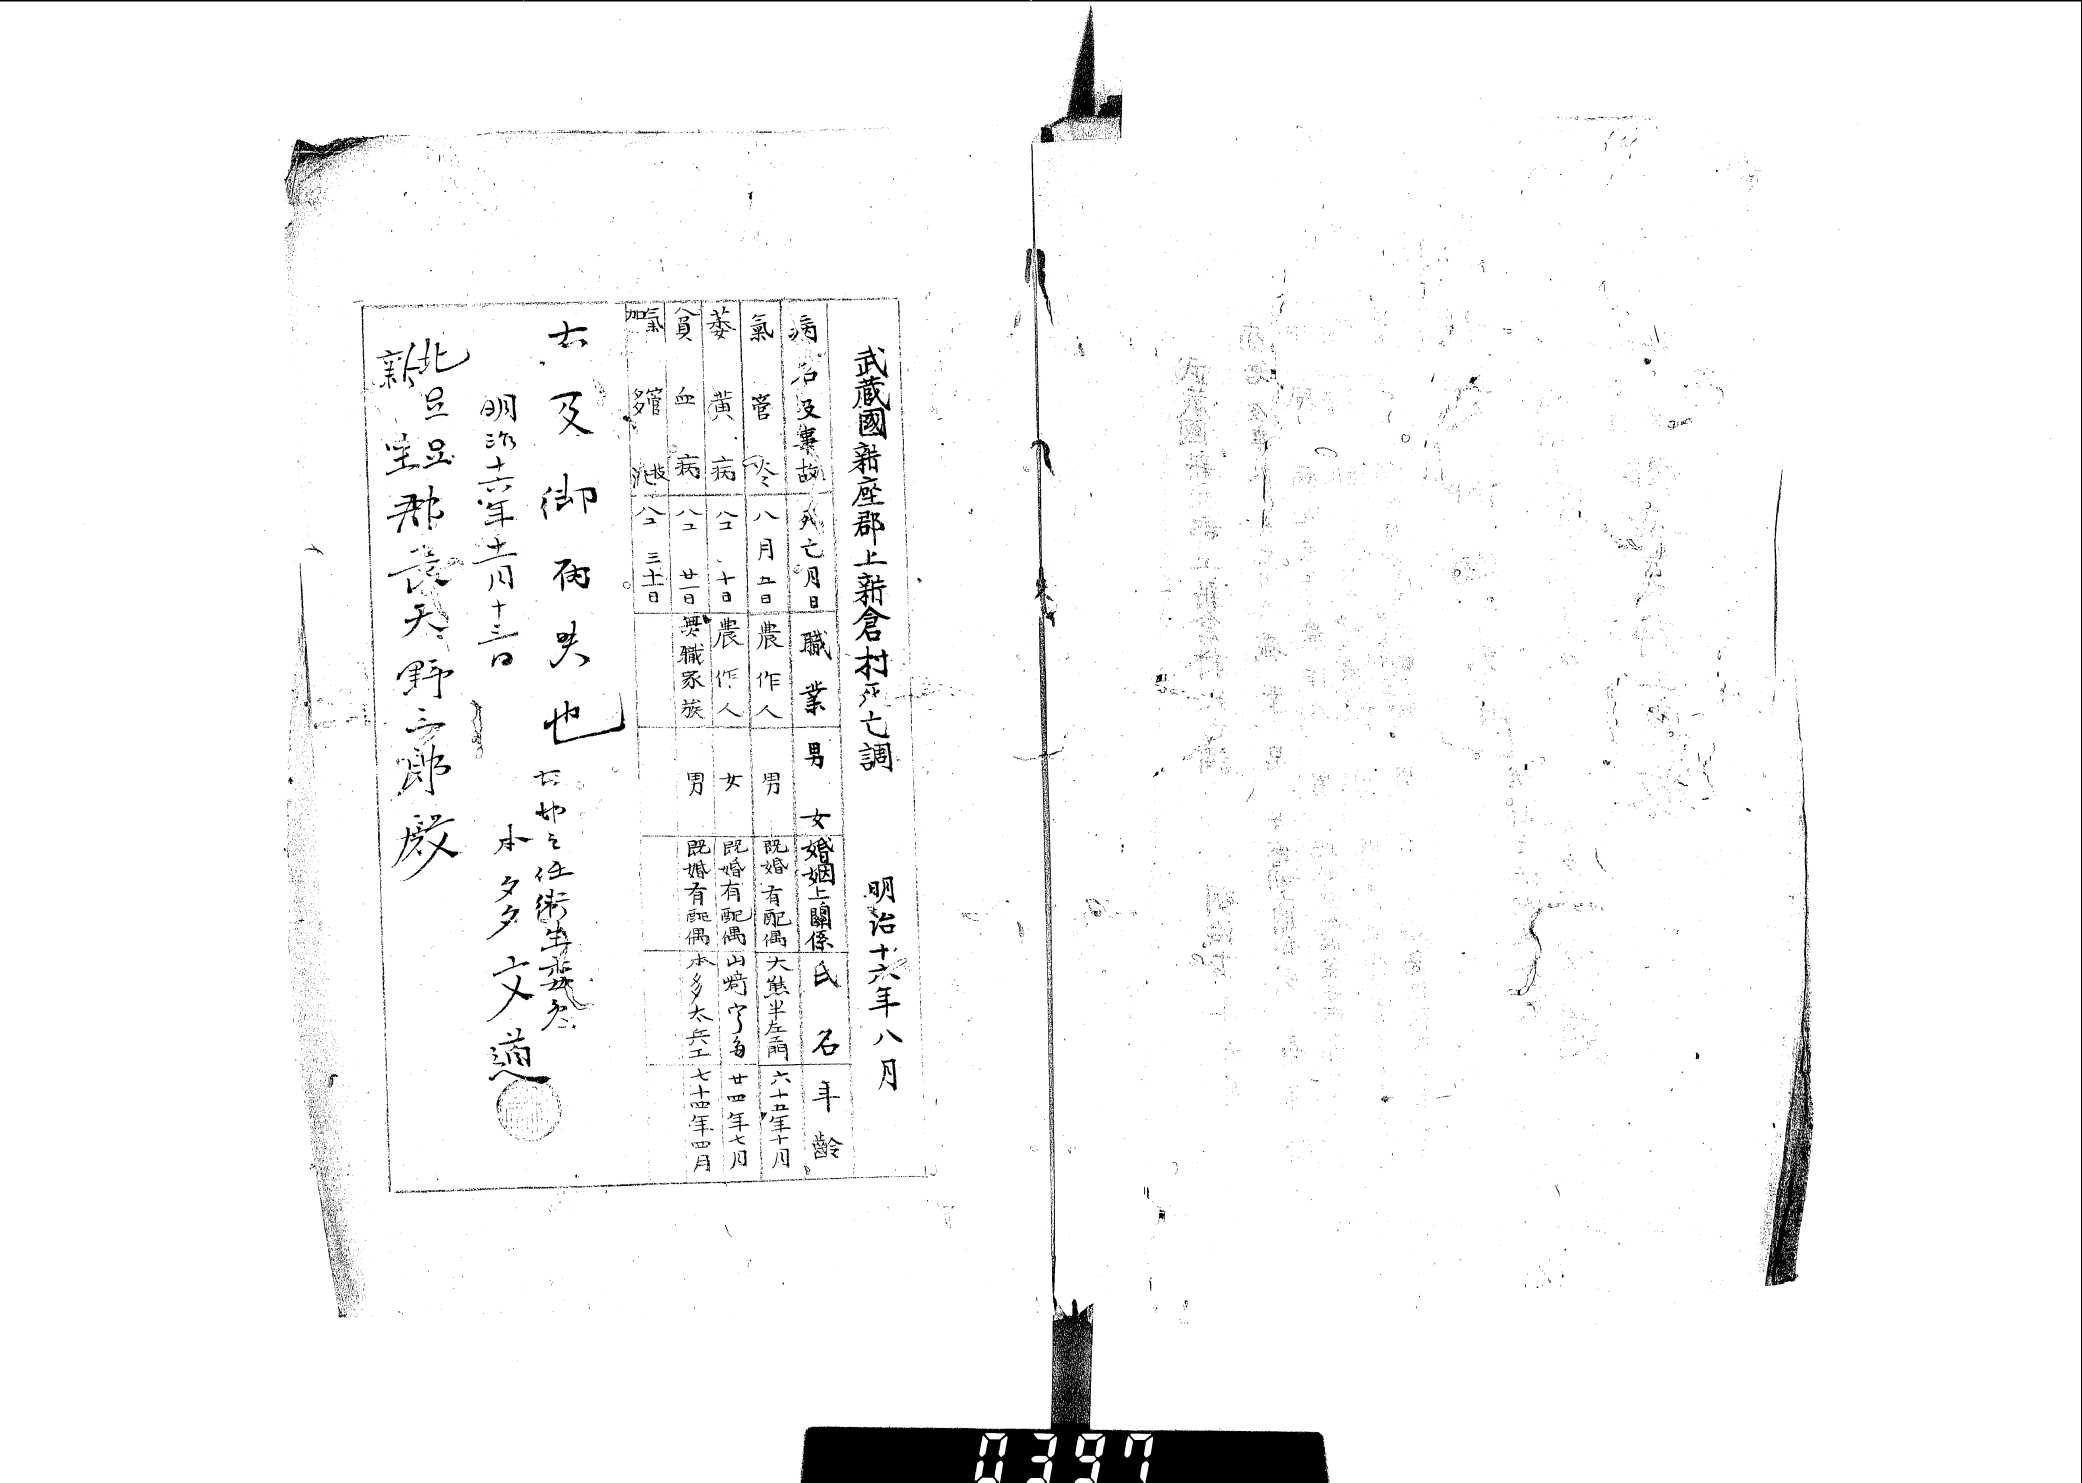 武蔵國新座郡上新倉村死亡調 明治十六年八月
病名及事故 死亡月日 職業 男女 婚姻上關係 氏名 年齢
氣管 八月五日 農作人 男 既婚有配偶 大熊半左衛門 六十五年十月
萎黄病 八〃 十日 農作人 女 既婚有配偶 山﨑 廿四年七月
貧血病 八〃 廿一日 無職家族 男 既婚有配偶 本多太兵エ 七十四年四月
氣管 八〃 三十一日
右及御届候也
右村 衛生委員
明治十六年十一月十三日
本多文道
北足立
新座郡長天野三郎殿
0397